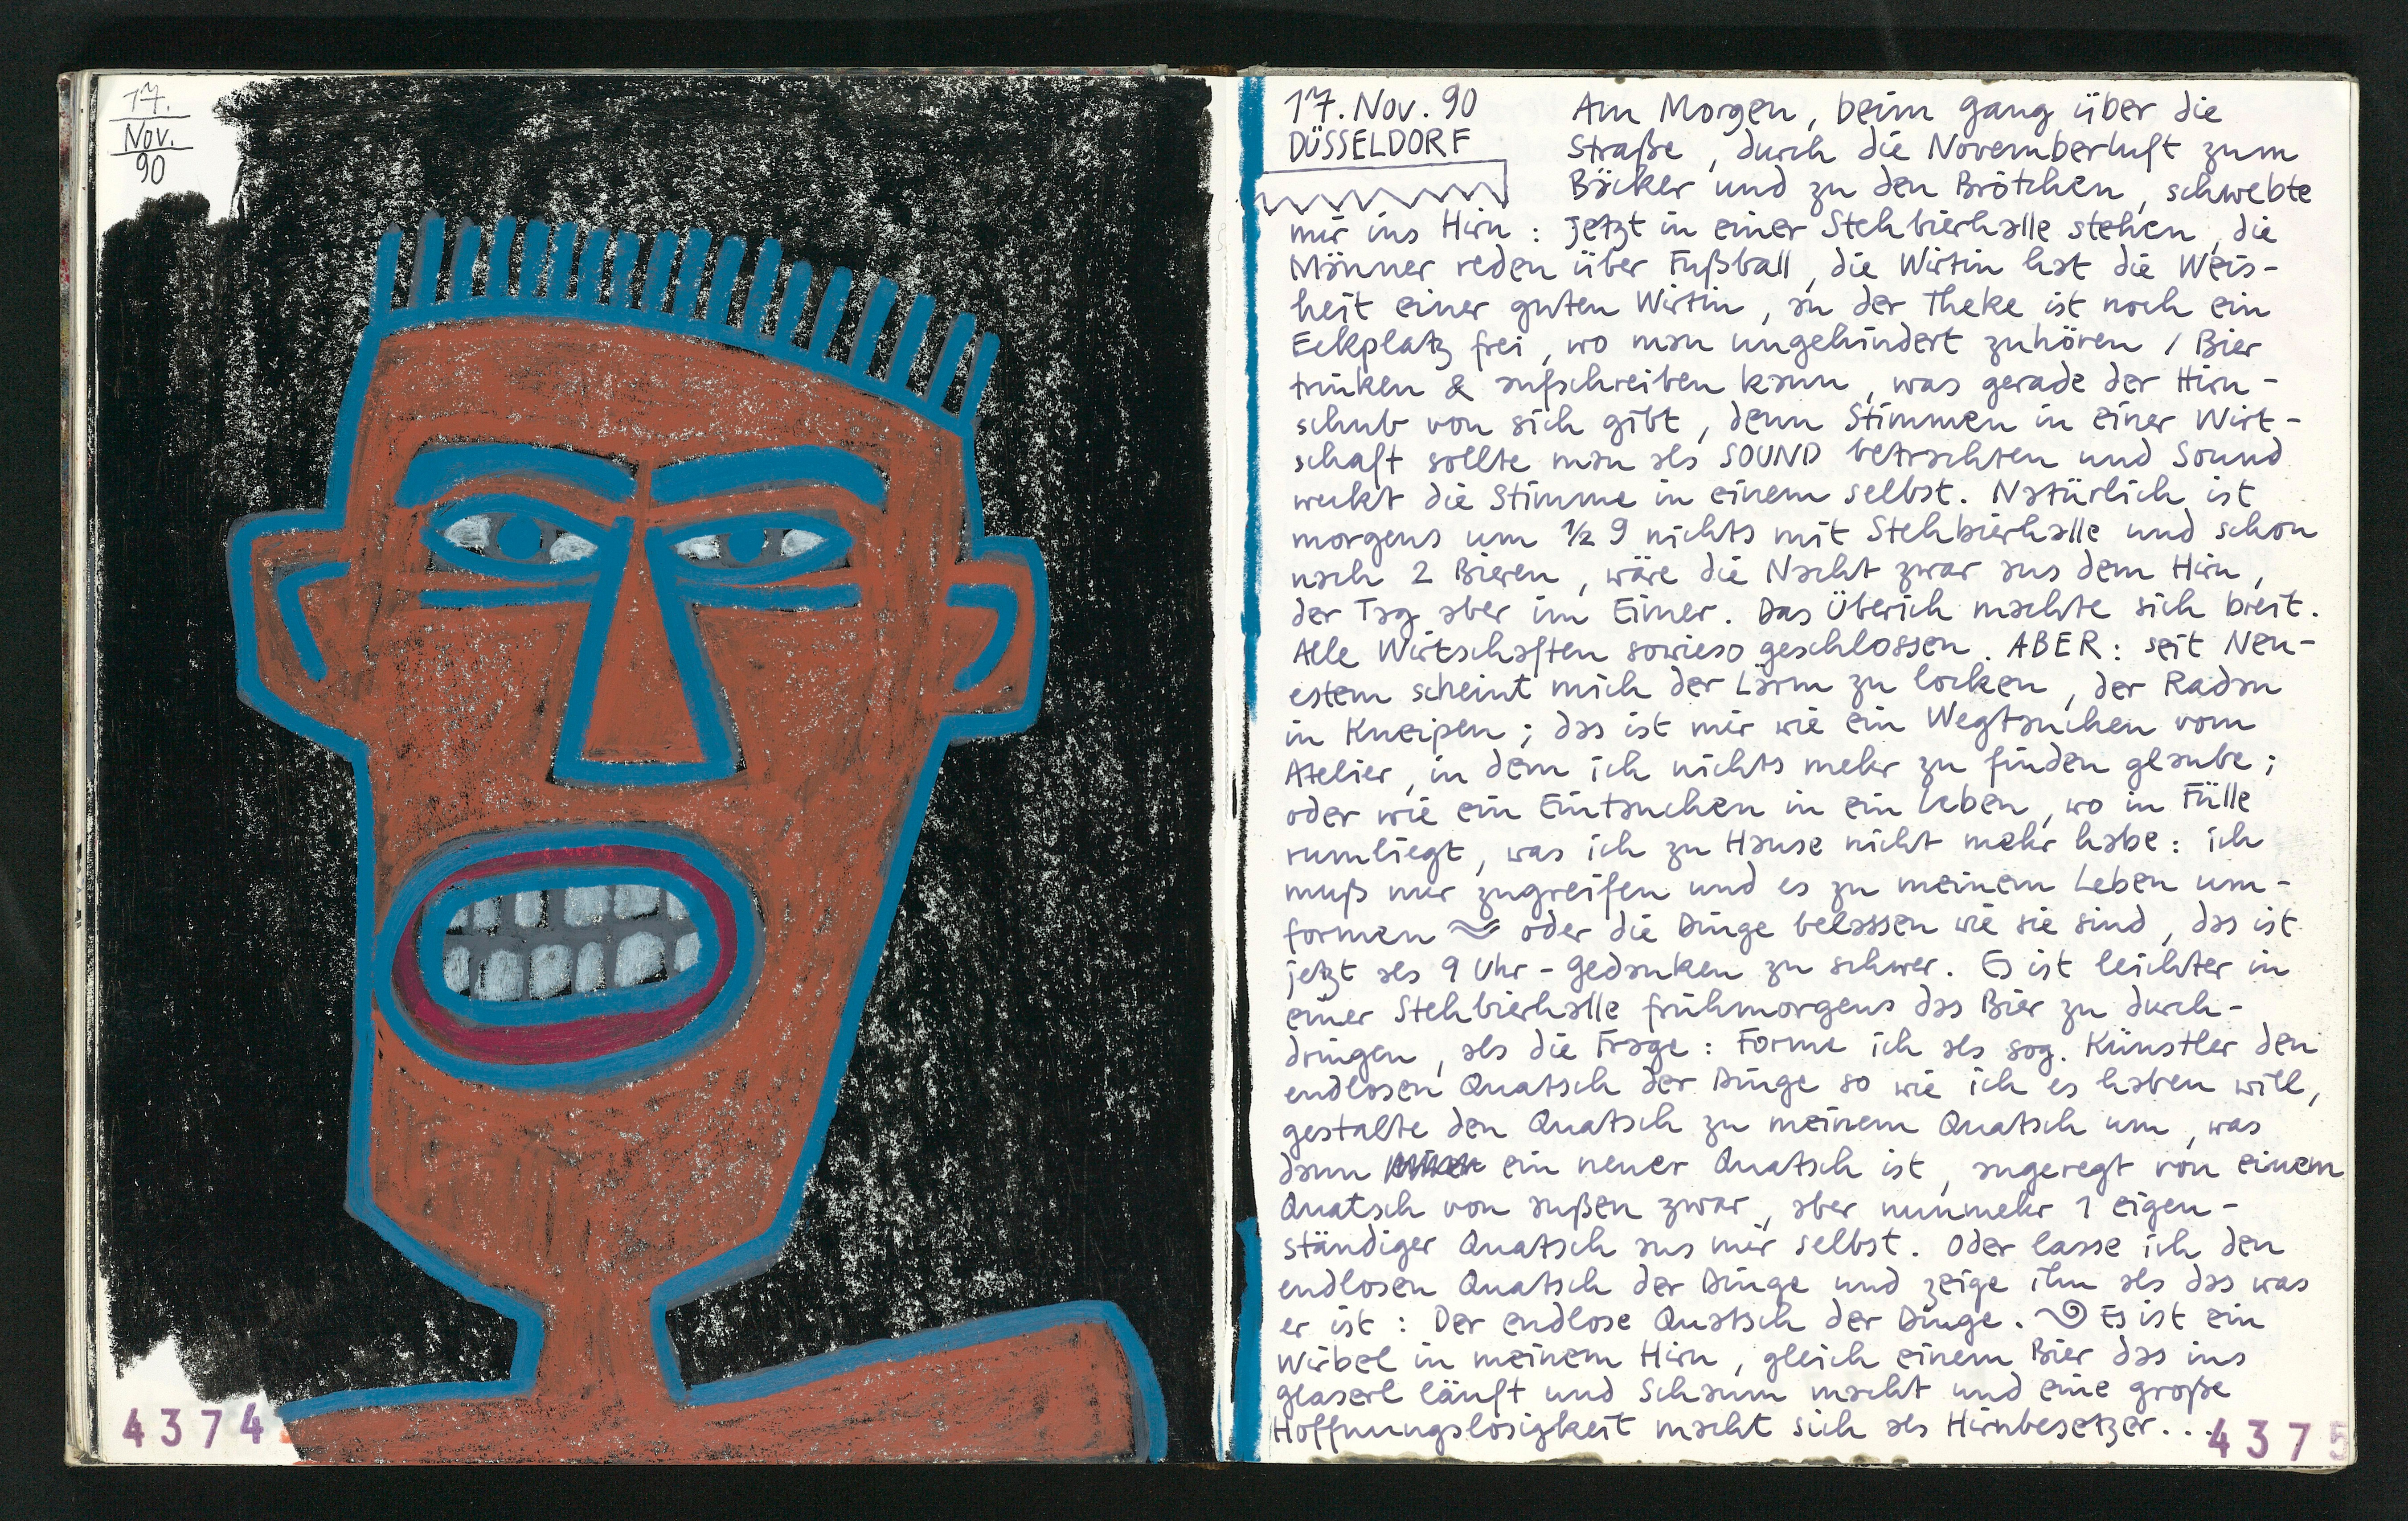 17.
Nov.
90
4374
17. Nov. 90
DÜSSELDORF
Am Morgen, beim Gang über die
Straße, durch die Novemberluft zum
Bäcker und zu den Brötchen, schwebte
mir ins Hirn : Jetzt in einer Stehbierhalle stehen, die
Männer reden über Fußball, die Wirtin hat die Weis-
heit einer guten Wirtin, an der Theke ist noch ein
Eckplatz frei, wo man ungehindert zuhören / Bier
trinken & aufschreiben kann, was gerade der Hirn-
schub von sich gibt, denn Stimmen in einer Wirt-
schaft sollte man als SOUND betrachten und Sound
weckt die Stimme in einem selbst. Natürlich ist
morgens um ½ 9 nichts mit Stehbierhalle und schon
nach 2 Bieren, wäre die Nacht zwar aus dem Hirn,
der Tag aber im Eimer. Das Überich machte sich breit.
Alle Wirtschaften sowieso geschlossen. ABER: seit Neu-
estem scheint mich der Lärm zu locken, der Radau
in Kneipen; das ist mir wie ein Wegtauchen vom
Atelier, in dem ich nichts mehr zu finden glaube;
oder wie ein Eintauchen in ein Leben, wo in Fülle
rumliegt, was ich zu Hause nicht mehr habe: ich
muß nur zugreifen und es zu meinem Leben um-
formen oder die Dinge belassen wie sie sind, das ist
jetzt als 9 Uhr - Gedanken zu schwer. Es ist leichter in
einer Stehbierhalle frühmorgens das Bier zu durch-
dringen, als die Frage: Forme ich als sog. Künstler den
endlosen Quatsch der Dinge so wie ich es haben will,
gestalte den Quatsch zu meinem Quatsch um, was
dann ein neuer Quatsch ist, angeregt von einem
Quatsch von außen zwar, aber nunmehr 1 eigen-
ständiger Quatsch aus mir selbst. Oder lasse ich den
endlosen Quatsch der Dinge und zeige ihn als das was
er ist : Der endlose Quatsch der Dinge. Es ist ein
Wirbel in meinem Hirn, gleich einem Bier das ins
Glaserl läuft und Schaum macht und eine große
Hoffnungslosigkeit macht sich als Hirnbesetzer...
4375